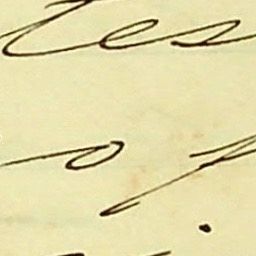 tes
of